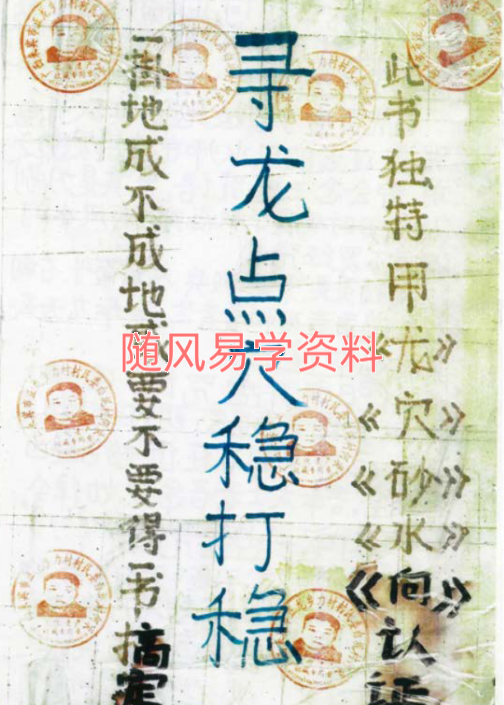 此书独特用《龙》《穴》《砂》《水》《向》认证
寻龙点穴稳打稳
地成不成地要不要得一书搞定
随风易学资料